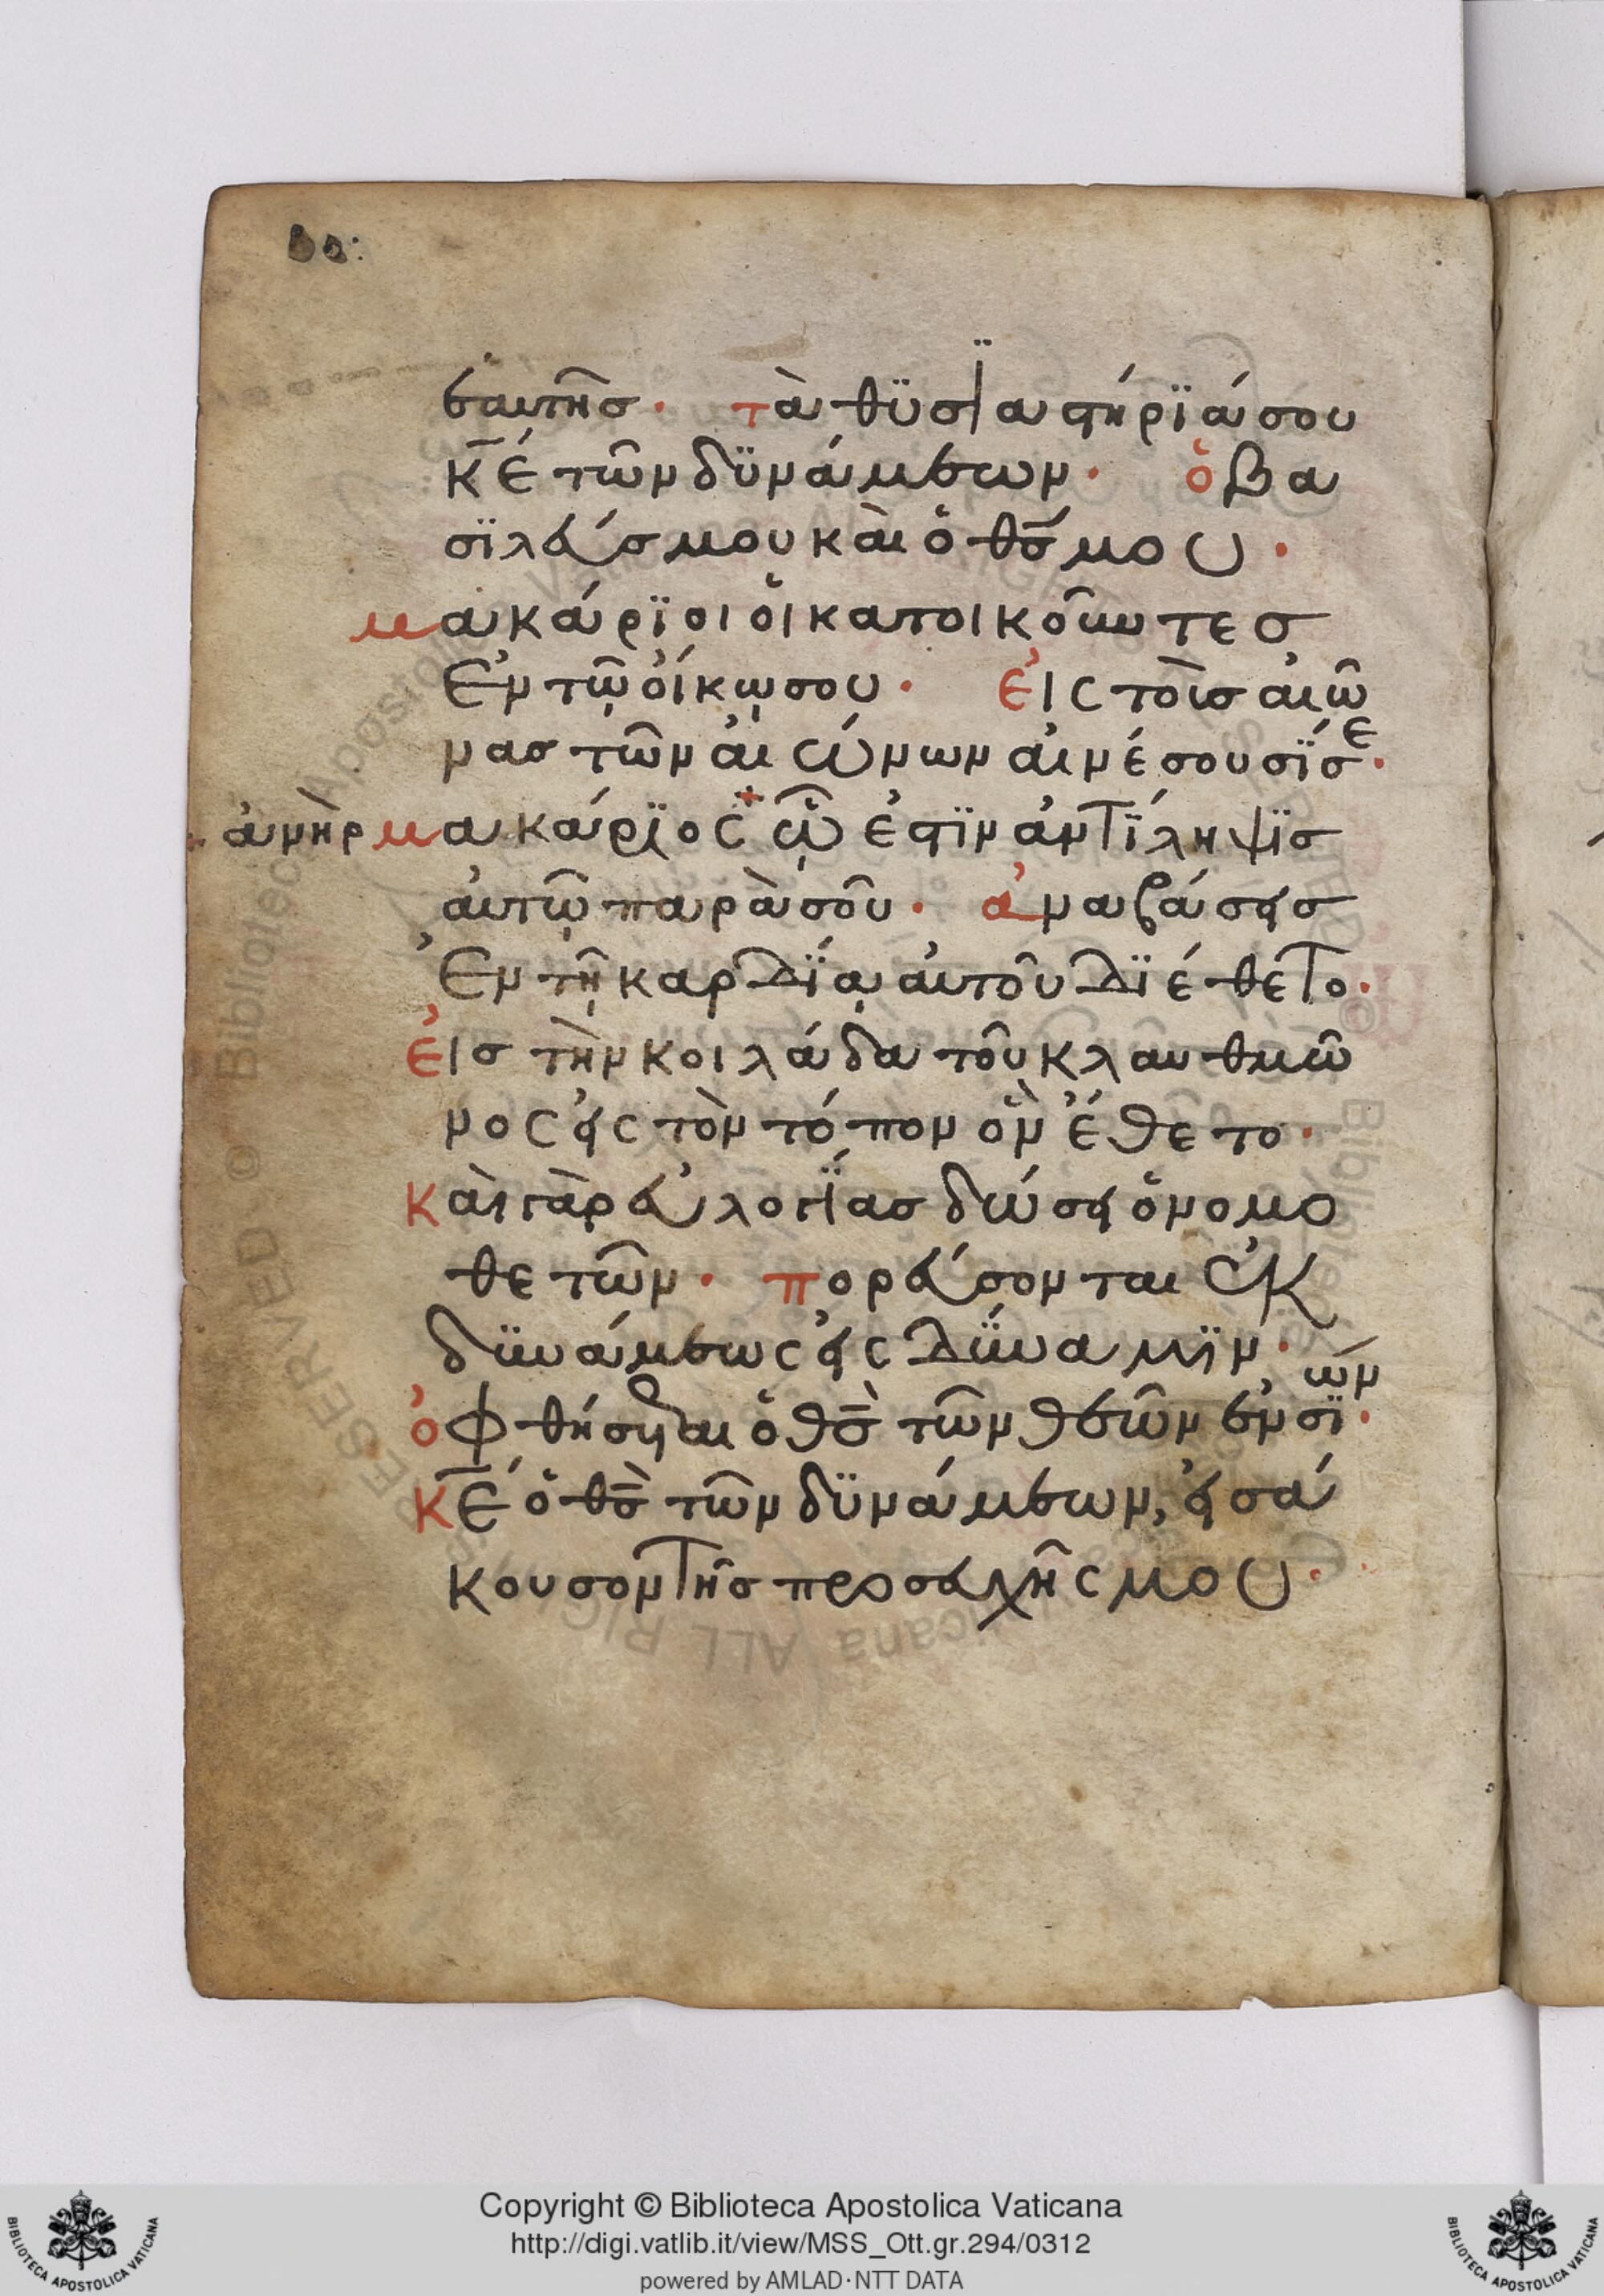 ἑαυτῆσ· τὰ θϋσϊαστήρϊά σου
κ̅ε̅ τῶν δϋνάμεων· ὁ βα
σϊλεύσ μου καὶ ὁ θ̅σ̅ μου·
μακάρϊοι οἱ κατοικοῦντεσ
ἐν τῷ οἴκῳ σου· εἰς τοὺσ αἰῶ
νασ τῶν αἰώνων αἰνέσουσΐ σε·
ἀνὴρ μακάρϊος ᾧ ἐστϊν ἀντΐληψϊσ
αὐτῷ παρὰ σοῦ· ἀναβάσεισ
ἐν τῇ καρδΐᾳ αὐτοῦ δϊέθετο·
εἰσ τὴν κοιλάδα τοῦ κλαυθμῶ
νος εἰς τὸν τόπον ὃν ἔθετο·
καὶ γὰρ εὐλογΐασ δώσει ὁ νομο
θετῶν· πορεύσονται ἐκ
δϋνάμεως εἰς δΰναμϊν·
ὀφθήσεται ὁ θ̅σ̅ τῶν θεῶν ἐν σϊών·
κ̅ε̅ ὁ θ̅σ̅ τῶν δϋνάμεων, εἰσά
κουσον τῆσ προσευχῆς μου·
Copyright © Biblioteca Apostolica Vaticana
http://digi.vatlib.it/view/MSS_Ott.gr.294/0312
powered by AMLAD·NTT DATA